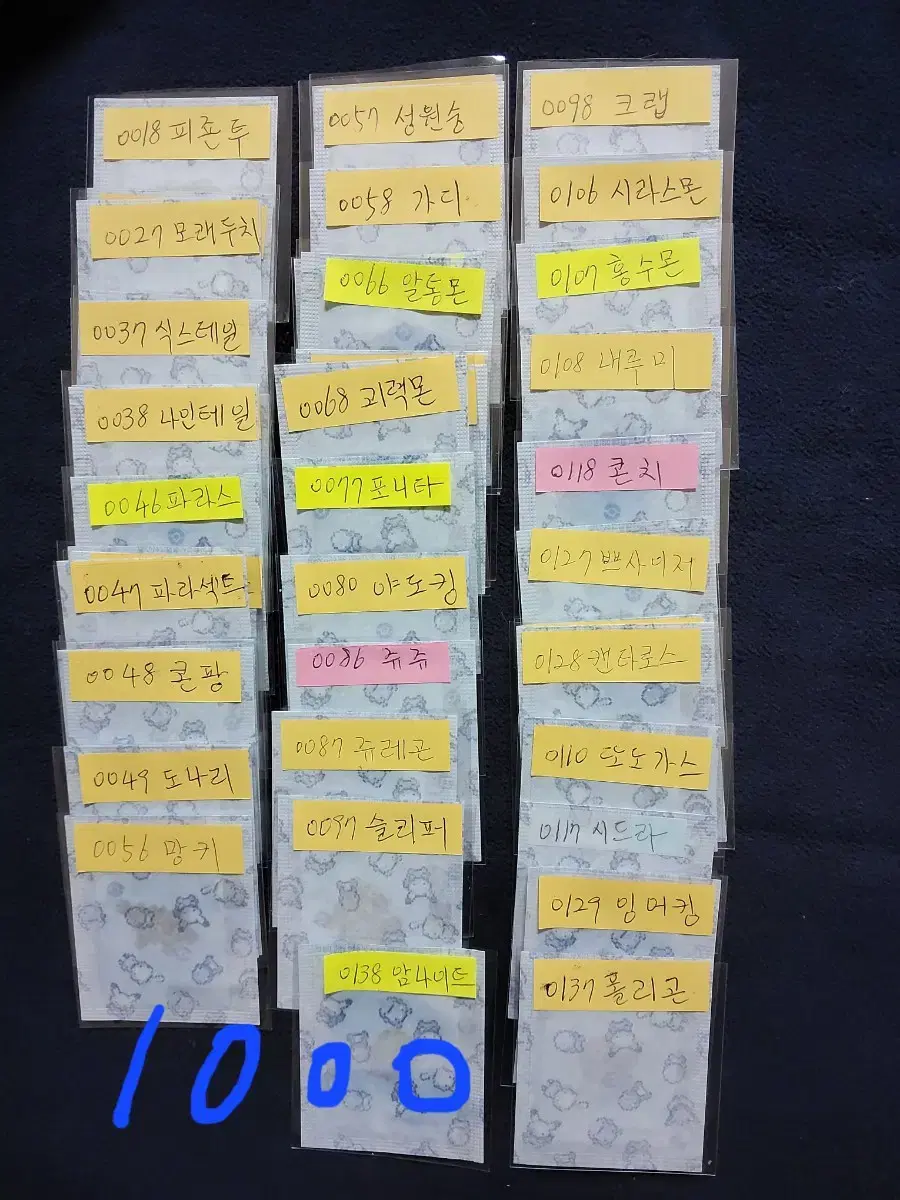 0018 피죤투
0027 모래두지
0037 식스테일
0038 나인테일
0046 파라스
0047 파라섹트
0048 콘팡
0049 도나리
0056 망키
0057 성원숭
0058 가디
0066 알통몬
0068 괴력몬
0077 포니타
0080 야도킹
0086 쥬쥬
0087 쥬레곤
0097 슬리퍼
0138 암나이트
0098 크랩
0106 시라스몬
0107 홍수몬
0108 내루미
0118 콘치
0127 쁘사이저
0128 캔타로스
0110 또도가스
0117 시드라
0129 잉어킹
0137 폴리곤
1000